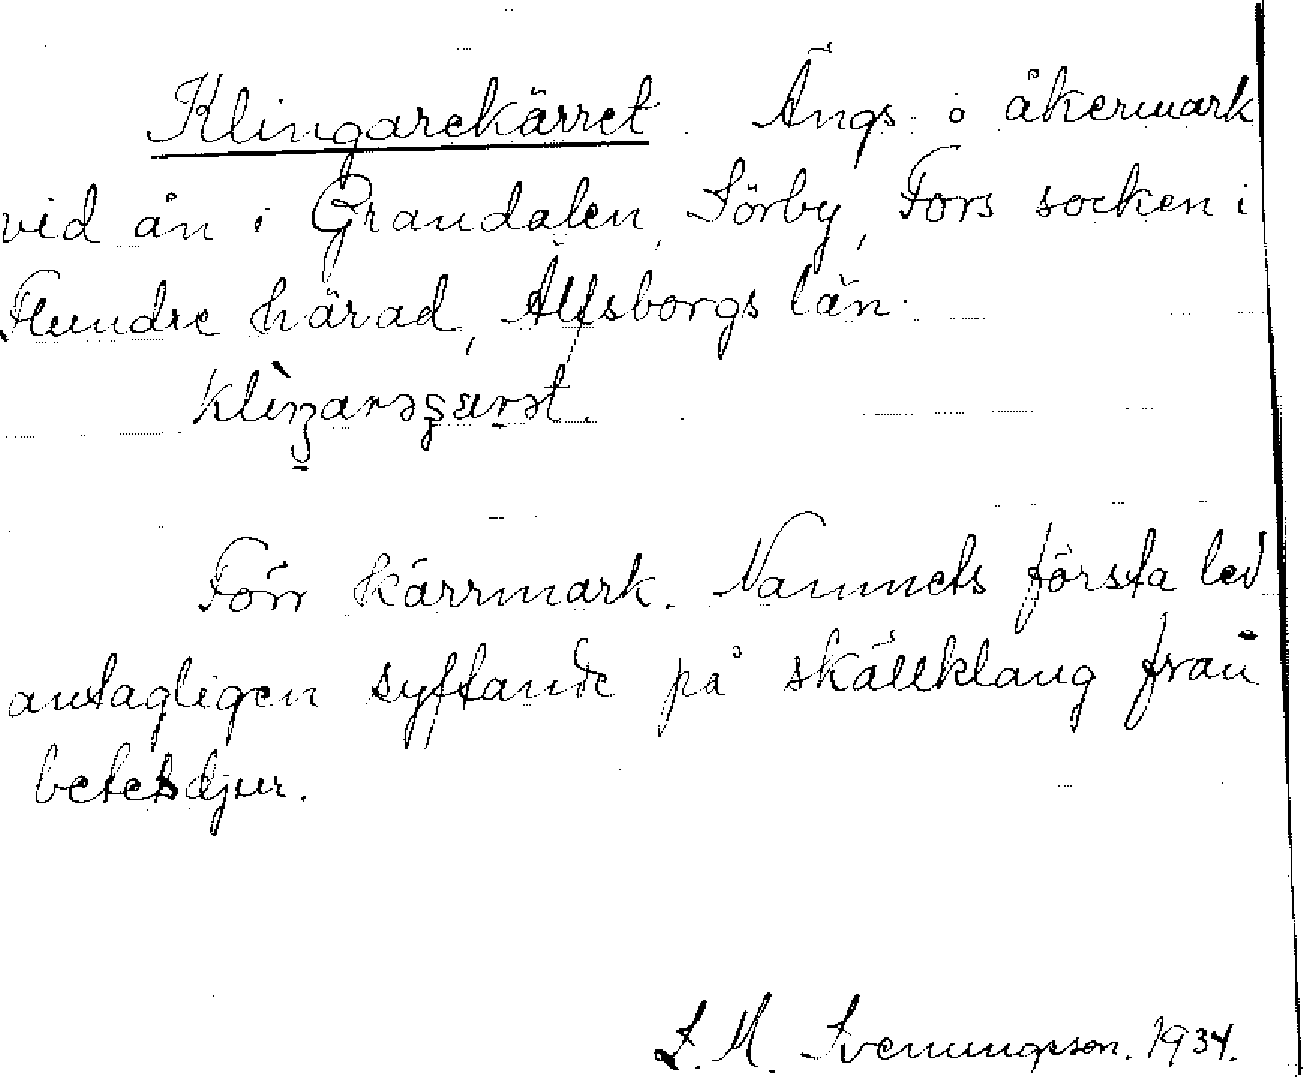 Klingarekärret. Ängs- o åkermark
vid ån i Grandalen, Sörby, Fors socken i
Flundre härad, Älfsborgs län.
Förr kärrmark. Namnets första led
antagligen syftande på skällklang från
betesdjur.
L. M. Svenungsson. 1934.